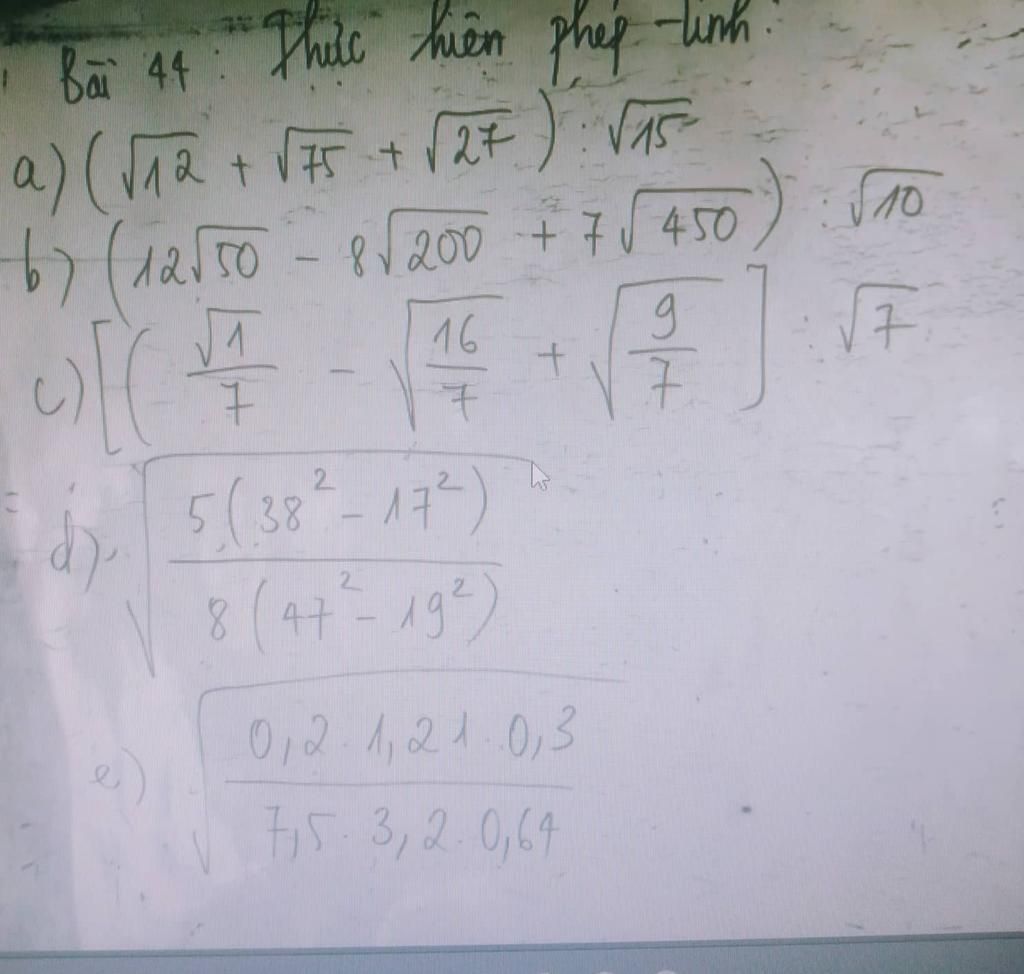 Bài 44: Thực hiện phép tính:
a) (√12 + √75 + √27) : √15
b) (12√50 - 8√200 + 7√450) : √10
c) [( √1/7 - √(16/7) + √(9/7) ] : √7
d) √(5(38² - 17²)/8(47² - 19²))
e) √(0,2 . 1,21 . 0,3/7,5 . 3,2 . 0,64)